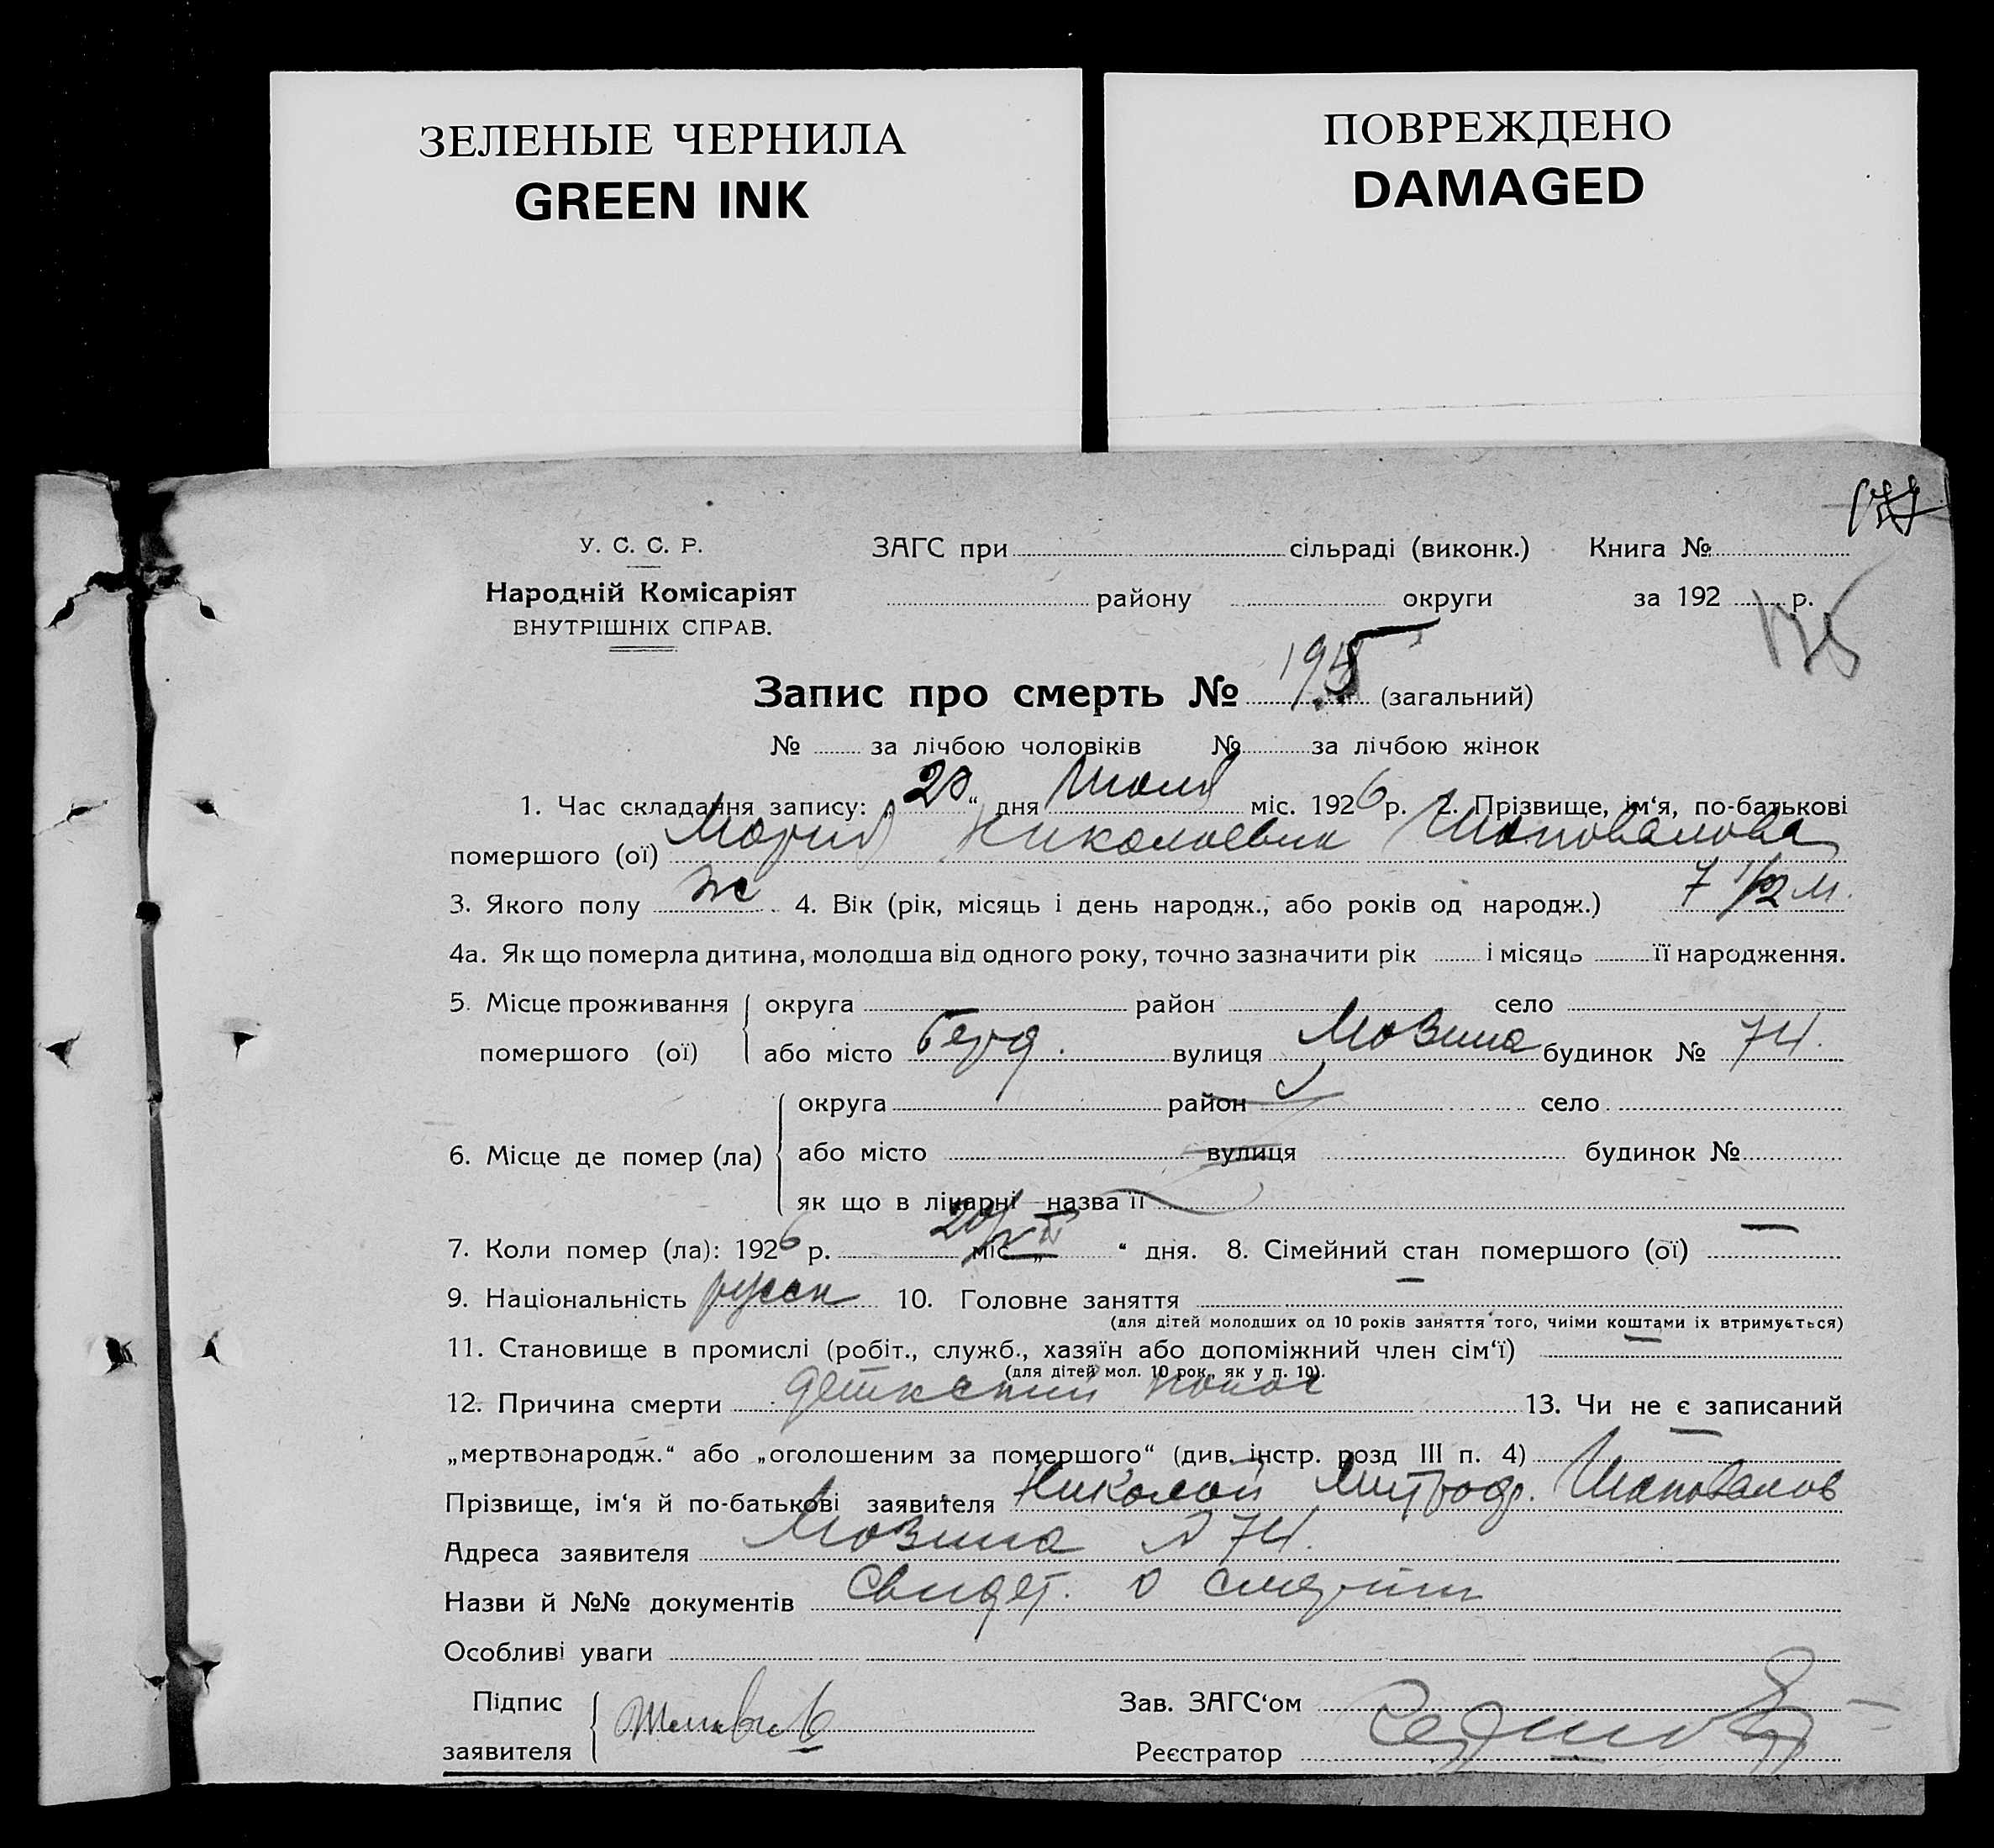 ЗЕЛЕНЫЕ ЧЕРНИЛА
GREEN INK
ПОВРЕЖДЕНО
DAMAGED
У. С. С. Р.
Народній Комісаріят
ВНУТРІШНІХ СПРАВ.
ЗАГС при сільраді (виконк.) Книга №
району округи за 192 р.
Запис про смерть № 195 (загальний)
№ за лічбою чоловіків № за лічбою жінок
1. Час складання запису: „20“ дня Июля міс. 1926 р. 2. Прізвище, ім‘я, по-батькові
помершого (ої) Мария Николаевна Шаповалова
3. Якого полу ж 4. Вік (рік, місяць і день народж., або років од народж.) 7 1/2 м.
4а. Як що померла дитина, молодша від одного року, точно зазначити рік і місяць її народження.
5. Місце проживання округа район село
помершого (ої) або місто Берд. вулиця Мазина будинок № 74.
округа район село
6. Місце де помер (ла) або місто вулиця будинок №
як що в лікарні назва її
7. Коли помер (ла): 1926 р. 20/VII міс. „ “ дня. 8. Сімейний стан помершого (ої) —
9. Національність русск 10. Головне заняття —
(для дітей молодших од 10 років заняття того, чиїми коштами їх втримується)
11. Становище в промислі (робіт., служб., хазяїн або допоміжний член сім‘ї) —
(для дітей мол. 10 рок., як у п. 10).
12. Причина смерти детский понос 13. Чи не є записаний
„мертвонародж.“ або „оголошеним за помершого“ (див. інстр. розд III п. 4) —
Прізвище, ім‘я й по-батькові заявителя Николай Митроф. Шаповалов
Адреса заявителя Мазина № 74.
Назви й №№ документів Свидет. о смерти
Особливі уваги
Підпис
заявителя
Зав. ЗАГС‘ом
Реєстратор